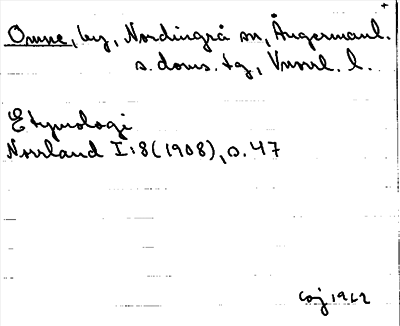 Omne, by, Nordingrå sn, Ångermanl.
s. doms. tg, Vnorrl. l.
Etymologi
Norrland I:8 (1908), s. 47
CGJ 1962